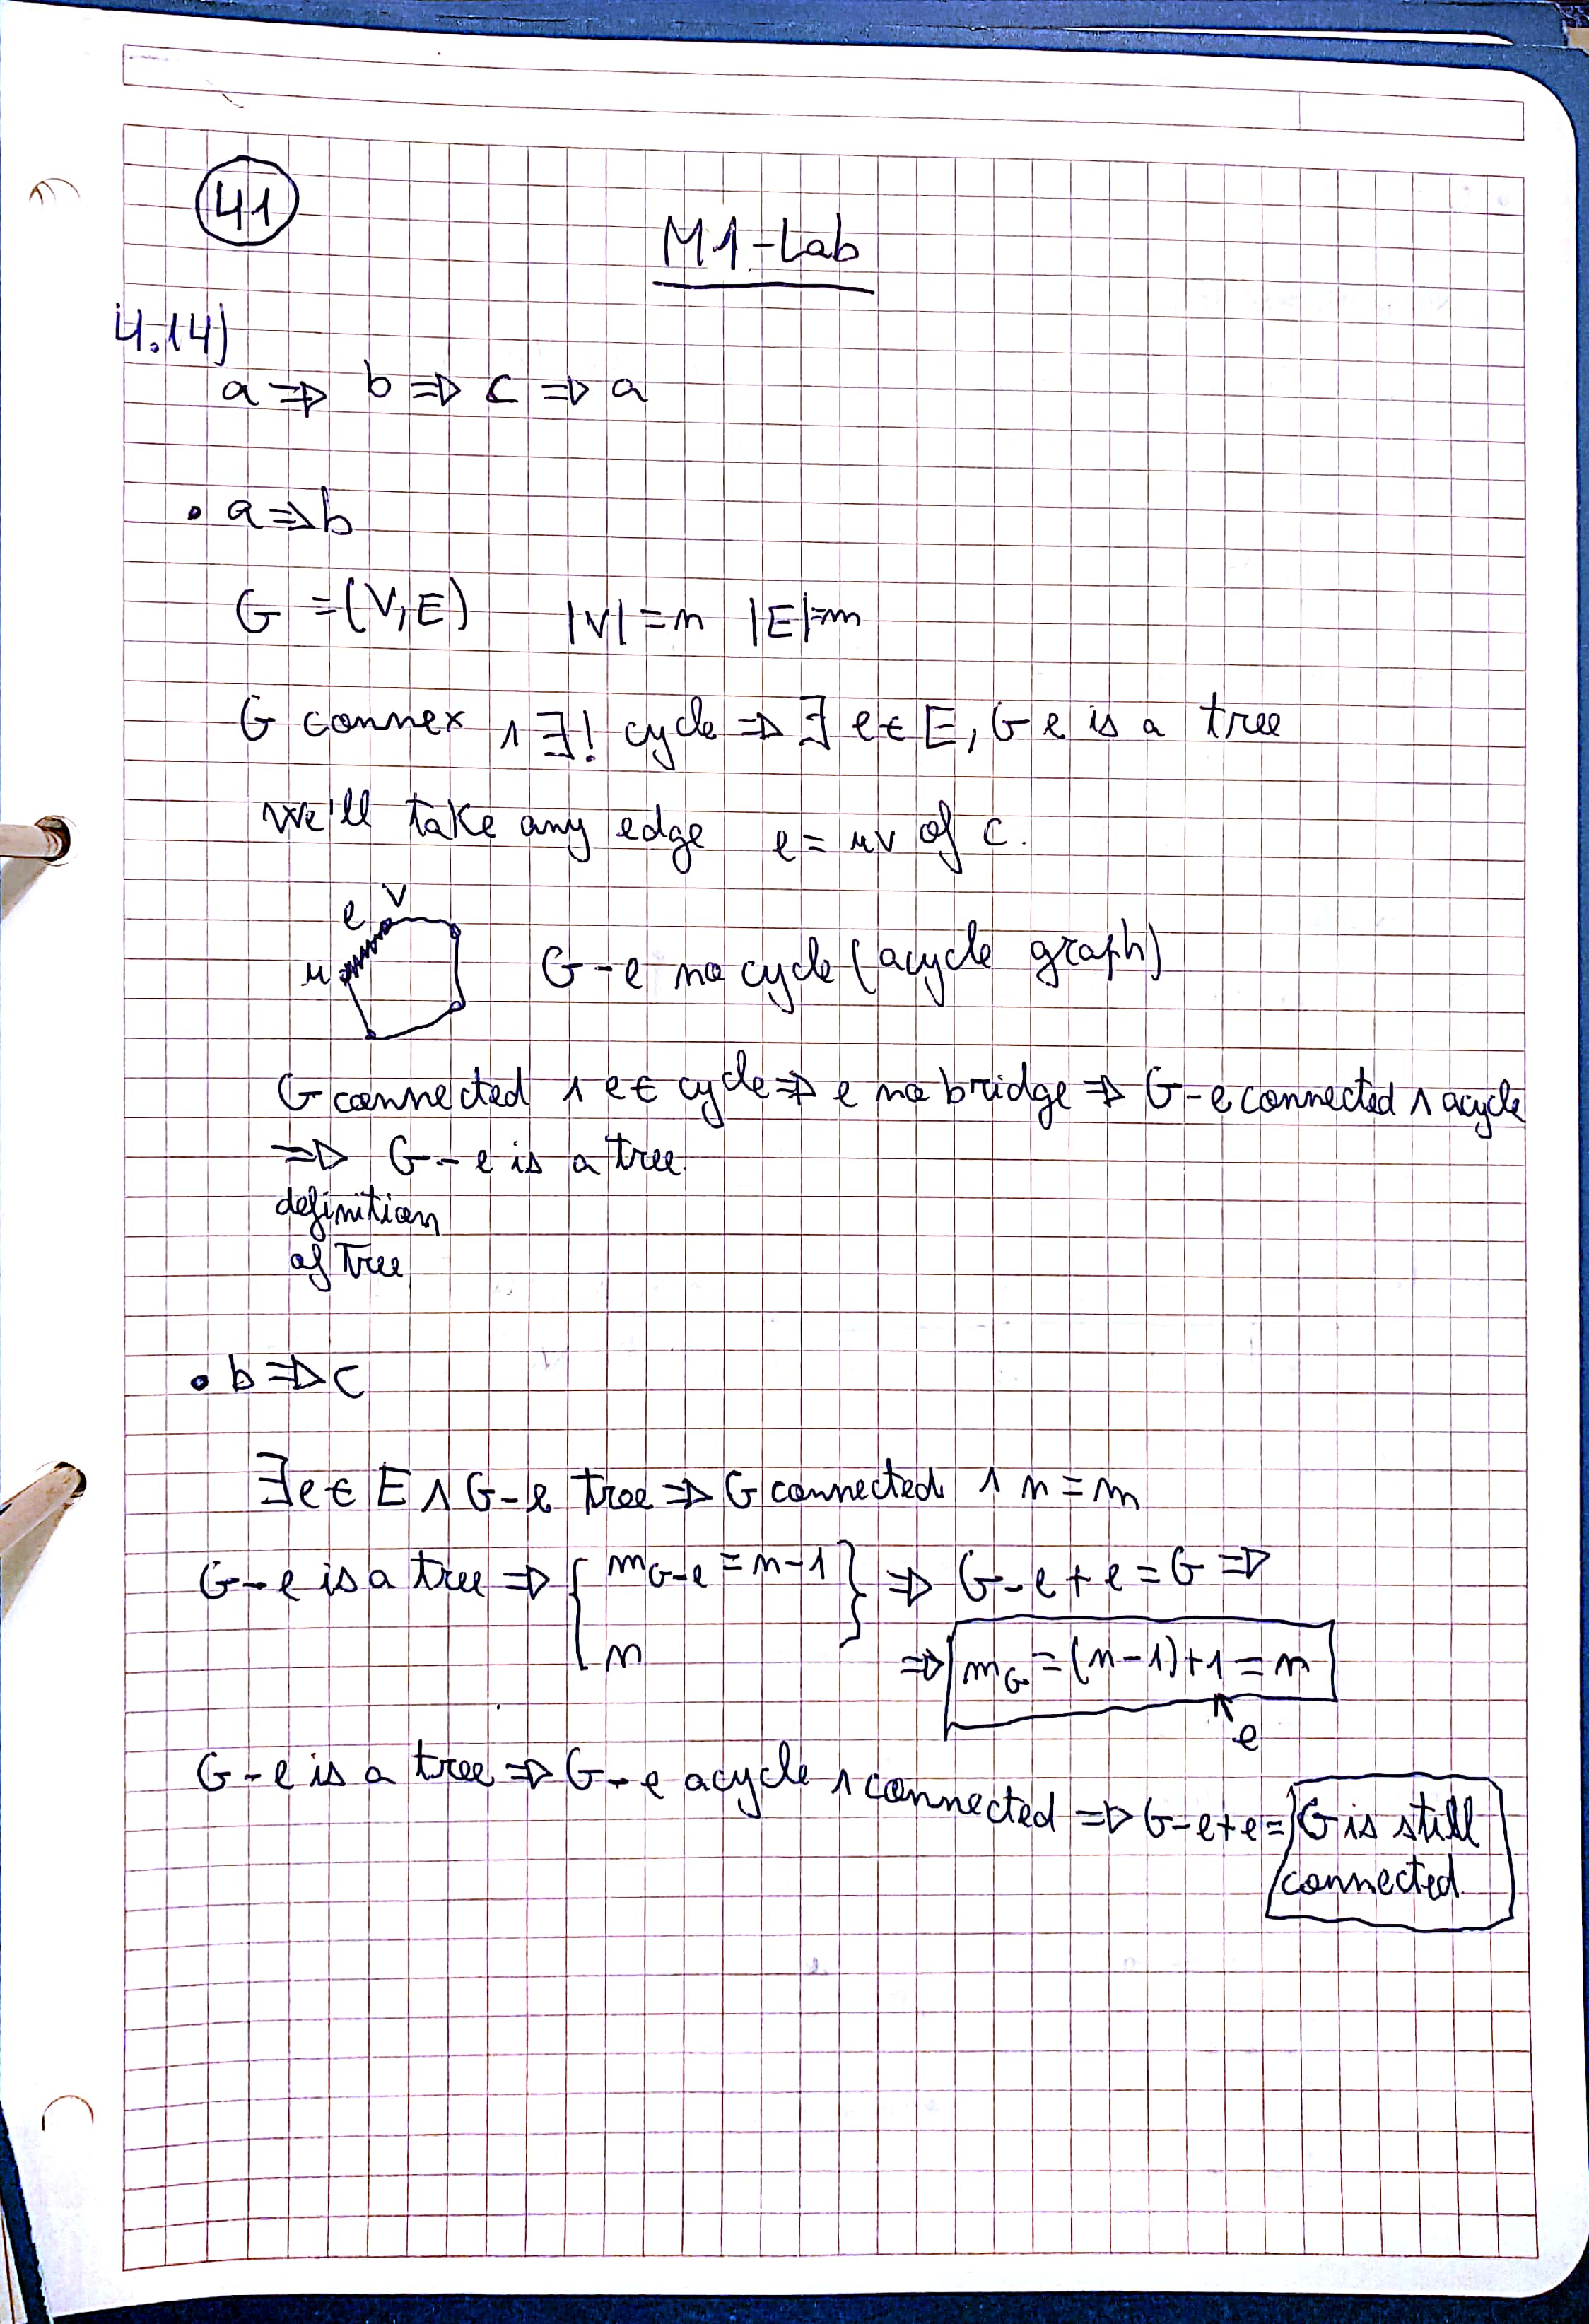 41
M1-Lab
4.14)
a ⇒ b ⇒ c ⇒ a
• a ⇒ b
G = (V,E) |V| = n |E| = m
G connex ∧ ∃! cycle ⇒ ∃ e ∈ E, G e is a tree
We'll take any edge e = uv of c.
e v
u
G - e no cycle (acycle graph)
G connected ∧ e ∈ cycle ⇒ e no bridge ⇒ G - e connected ∧ acycle
⇒ G - e is a tree
definition
of Tree
• b ⇒ c
∃e ∈ E ∧ G - e tree ⇒ G connected ∧ n = m
G - e is a tree ⇒ { m_{G-e} = n - 1 } ⇒ G - e + e = G ⇒
n ⇒ m_G = (n - 1) + 1 = n
e
G - e is a tree ⇒ G - e acycle ∧ connected ⇒ G - e + e = G is still
connected